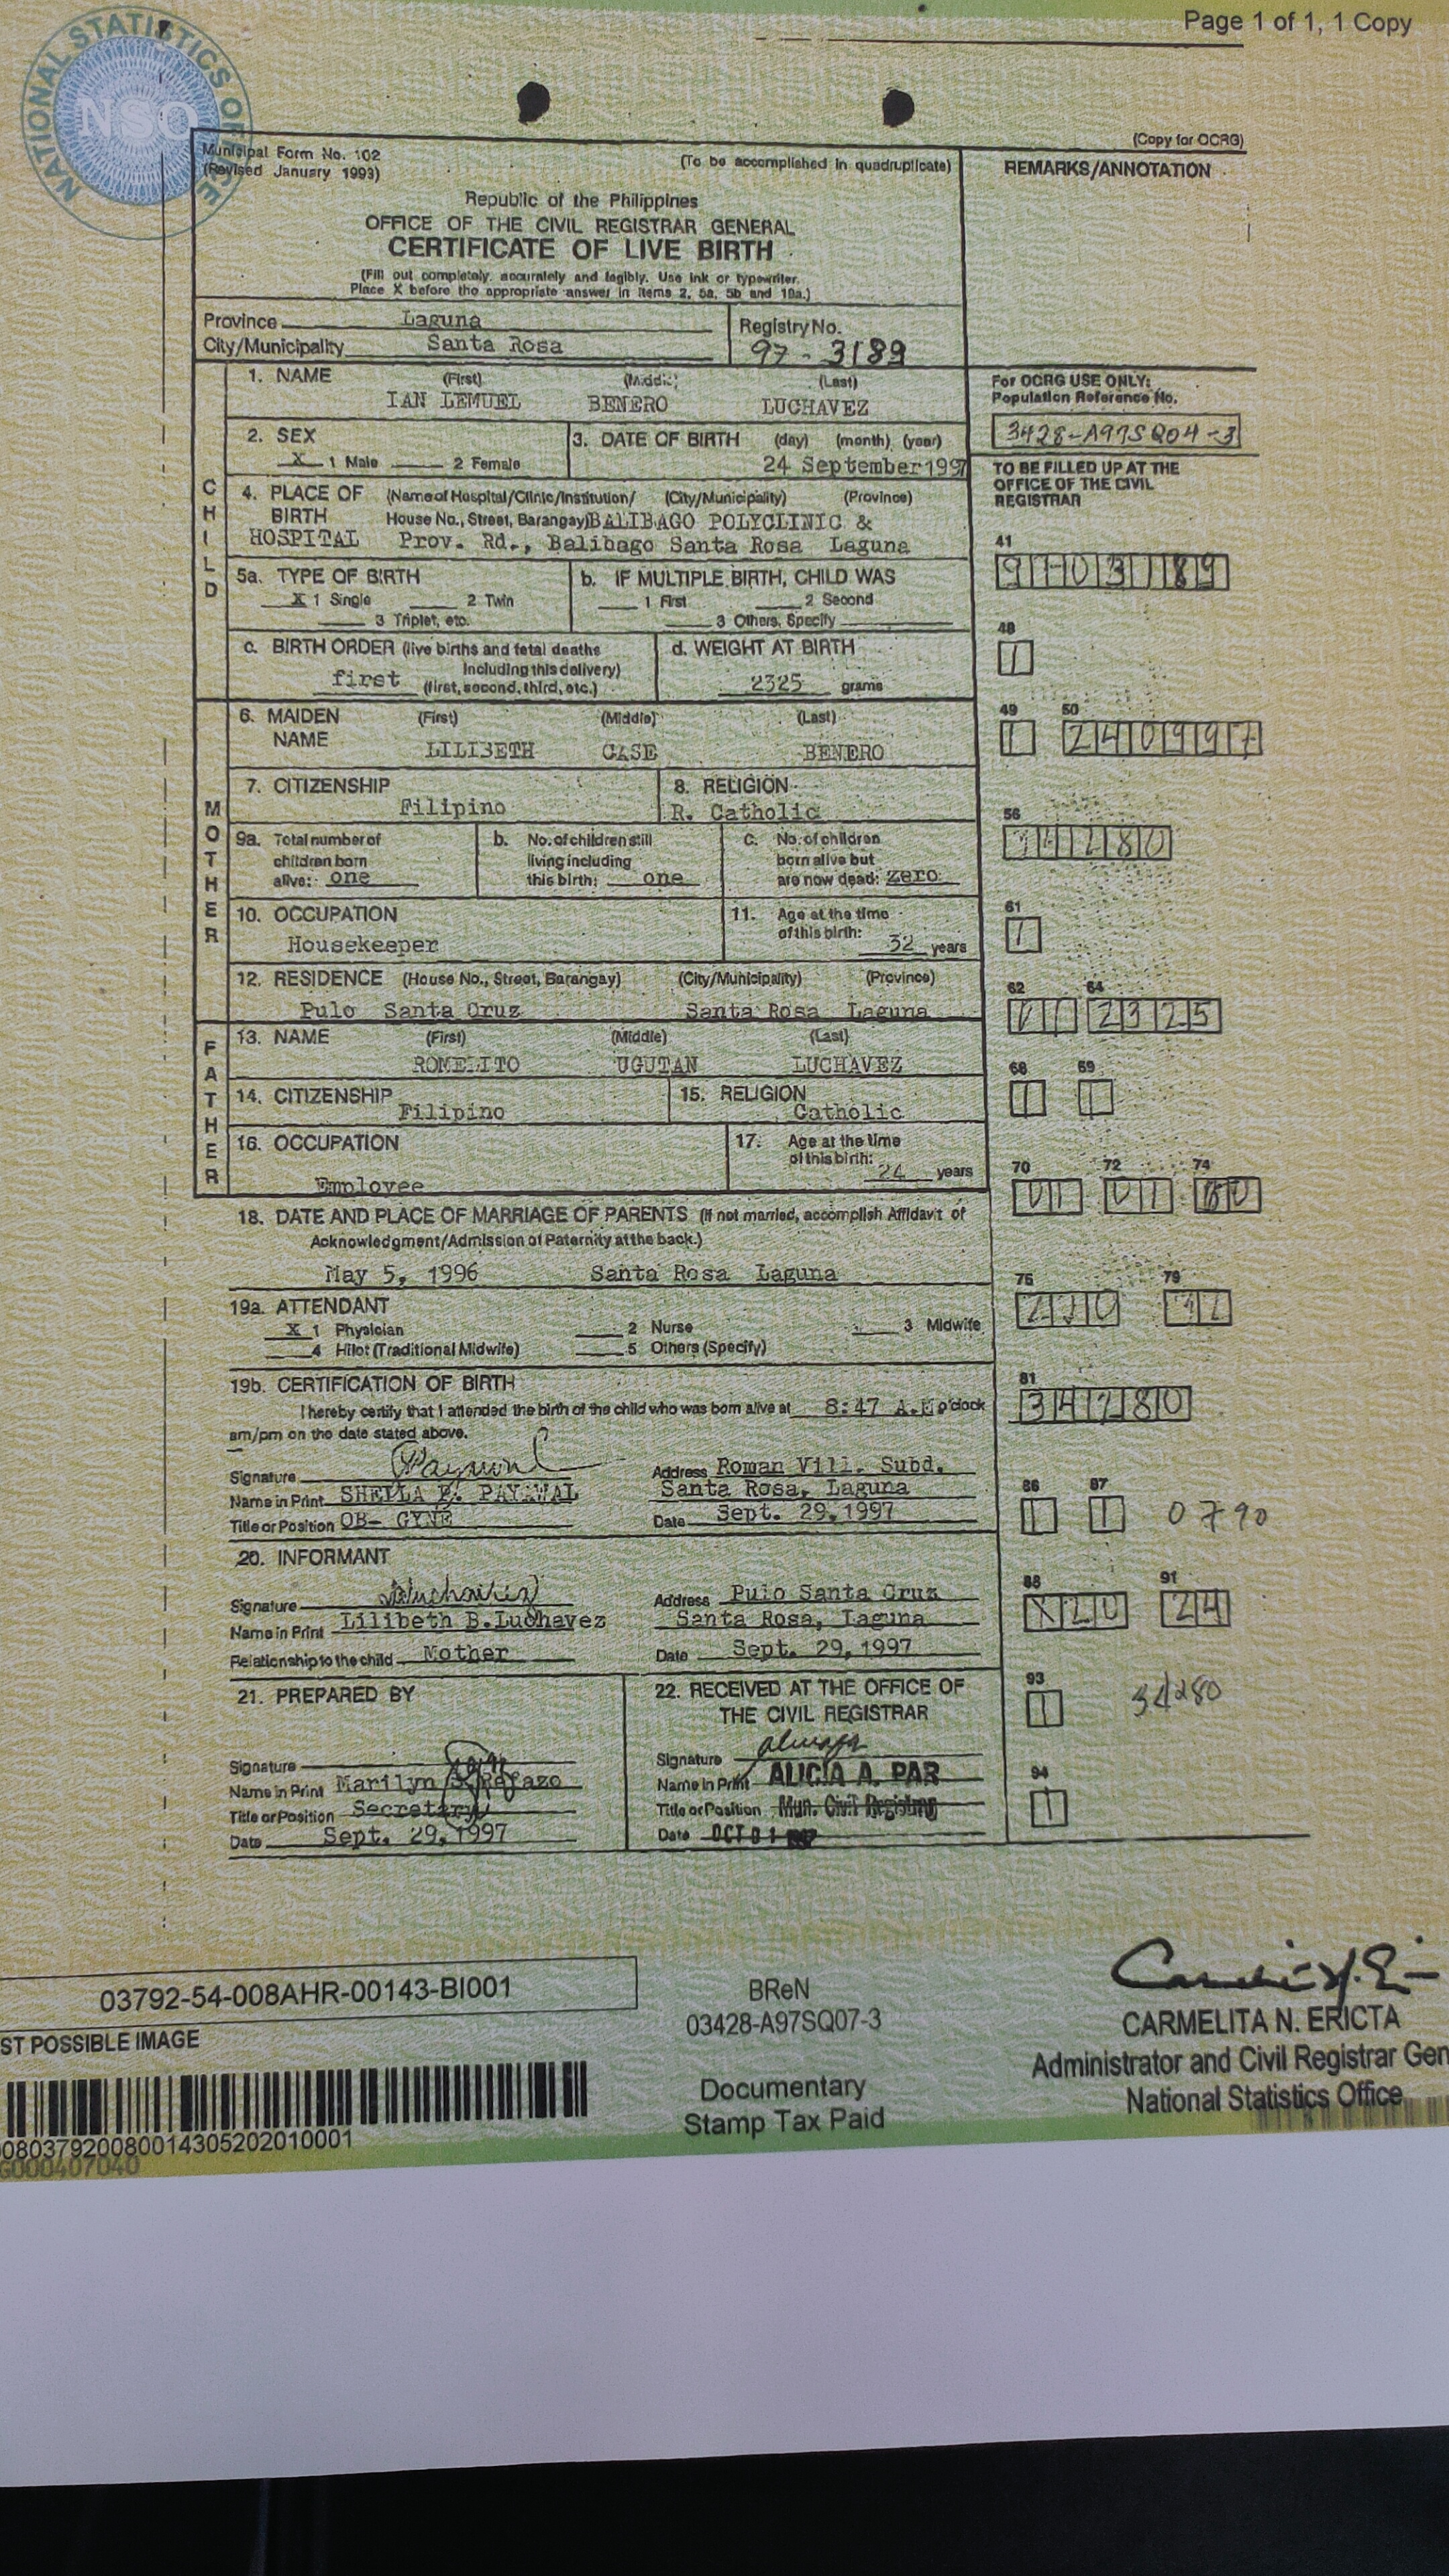 Page 1 of 1, 1 Copy
NATIONAL STATISTICS OFFICE
NSO
(Copy for OCRG)
Municipal Form No. 102
(Revised January 1993)
(To be accomplished in quadruplicate)
REMARKS/ANNOTATION
Republic of the Philippines
OFFICE OF THE CIVIL REGISTRAR GENERAL
CERTIFICATE OF LIVE BIRTH
(Fill out completely, accurately and legibly. Use ink or typewriter.
Place X before the appropriate answer in items 2, 5a, 5b and 19a.)
Province Laguna
City/Municipality Santa Rosa
Registry No.
97 - 3189
CHILD
1. NAME (First) (Middle) (Last)
IAN LEMUEL BENERO LUCHAVEZ
For OCRG USE ONLY:
Population Reference No.
3428-A97SQ04-3
2. SEX
X 1 Male 2 Female
3. DATE OF BIRTH (day) (month) (year)
24 September 1997
TO BE FILLED UP AT THE
OFFICE OF THE CIVIL
REGISTRAR
4. PLACE OF BIRTH (Name of Hospital/Clinic/Institution/ (City/Municipality) (Province)
House No., Street, Barangay) BALIBAGO POLYCLINIC &
HOSPITAL Prov. Rd., Balibago Santa Rosa Laguna
41
9703189
5a. TYPE OF BIRTH
X 1 Single 2 Twin
3 Triplet, etc.
b. IF MULTIPLE BIRTH, CHILD WAS
1 First 2 Second
3 Others, Specify
48
1
c. BIRTH ORDER (live births and fetal deaths
including this delivery)
first (first, second, third, etc.)
d. WEIGHT AT BIRTH
2325 grams
MOTHER
6. MAIDEN NAME (First) (Middle) (Last)
LILIBETH CASE BENERO
49
1
50
240997
7. CITIZENSHIP
Filipino
8. RELIGION
R. Catholic
56
34280
9a. Total number of
children born
alive: one
b. No. of children still
living including
this birth: one
c. No. of children
born alive but
are now dead: zero
10. OCCUPATION
Housekeeper
11. Age at the time
of this birth: 32 years
61
1
12. RESIDENCE (House No., Street, Barangay) (City/Municipality) (Province)
Pulo Santa Cruz Santa Rosa Laguna
62
64
2325
FATHER
13. NAME (First) (Middle) (Last)
ROMELITO UGUTAN LUCHAVEZ
68
1
69
1
14. CITIZENSHIP
Filipino
15. RELIGION
Catholic
16. OCCUPATION
Employee
17. Age at the time
of this birth: 24 years
70
01
72
01
74
18. DATE AND PLACE OF MARRIAGE OF PARENTS (If not married, accomplish Affidavit of
Acknowledgment/Admission of Paternity at the back.)
May 5, 1996 Santa Rosa Laguna
76
79
32
19a. ATTENDANT
X 1 Physician 2 Nurse 3 Midwife
4 Hilot (Traditional Midwife) 5 Others (Specify)
19b. CERTIFICATION OF BIRTH
I hereby certify that I attended the birth of the child who was born alive at 8:47 A.M o'clock
am/pm on the date stated above.
81
34280
Signature
Name in Print SHEILA P. PAYAWAL
Title or Position OB- GYNE
Address Roman Vill. Subd.
Santa Rosa, Laguna
Date Sept. 29,1997
86
1
87
1
0790
20. INFORMANT
Signature Luchavez
Name in Print Lilibeth B.Luchavez
Relationship to the child Mother
Address Pulo Santa Cruz
Santa Rosa, Laguna
Date Sept. 29,1997
88
91
24
21. PREPARED BY
Signature
Name in Print Marilyn
Title or Position Secretary
Date Sept. 29,1997
22. RECEIVED AT THE OFFICE OF
THE CIVIL REGISTRAR
Signature
Name in Print ALICIA A. PAR
Title or Position Mun. Civil Registrar
Date OCT 01
93
1
34280
94
1
03792-54-008AHR-00143-BI001
ST POSSIBLE IMAGE
08037920080014305202010001
G000407040
BReN
03428-A97SQ07-3
Documentary
Stamp Tax Paid
CARMELITA N. ERICTA
Administrator and Civil Registrar Gen
National Statistics Office